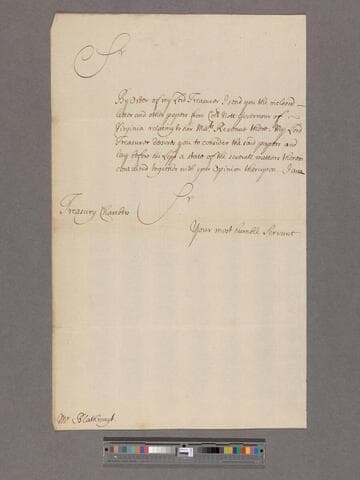 Sr
By Order of my Lord Treasurer I send you the inclosed
Letter and other papers from Coll. Nott Governour of
Virginia relating to her Mats. Revenue there. My Lord
Treasurer desires you to consider the said papers and
lay before his Lopp a state of the severall matters therein
contained together with your Opinion thereupon. I am
Sr
Treasury Chambers
Your most humble Servant
Mr Blathwayt.